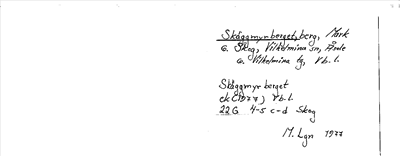 Skäggmyrberget, berg, Mark
G. Skog, Vilhelmina sn, Åsele
G. Vilhelmina tg, Vb. l.
Skäggmyrberget
ek (1977) Vb. l.
22G 4-5 c-d Skog
M. Lgn 1977